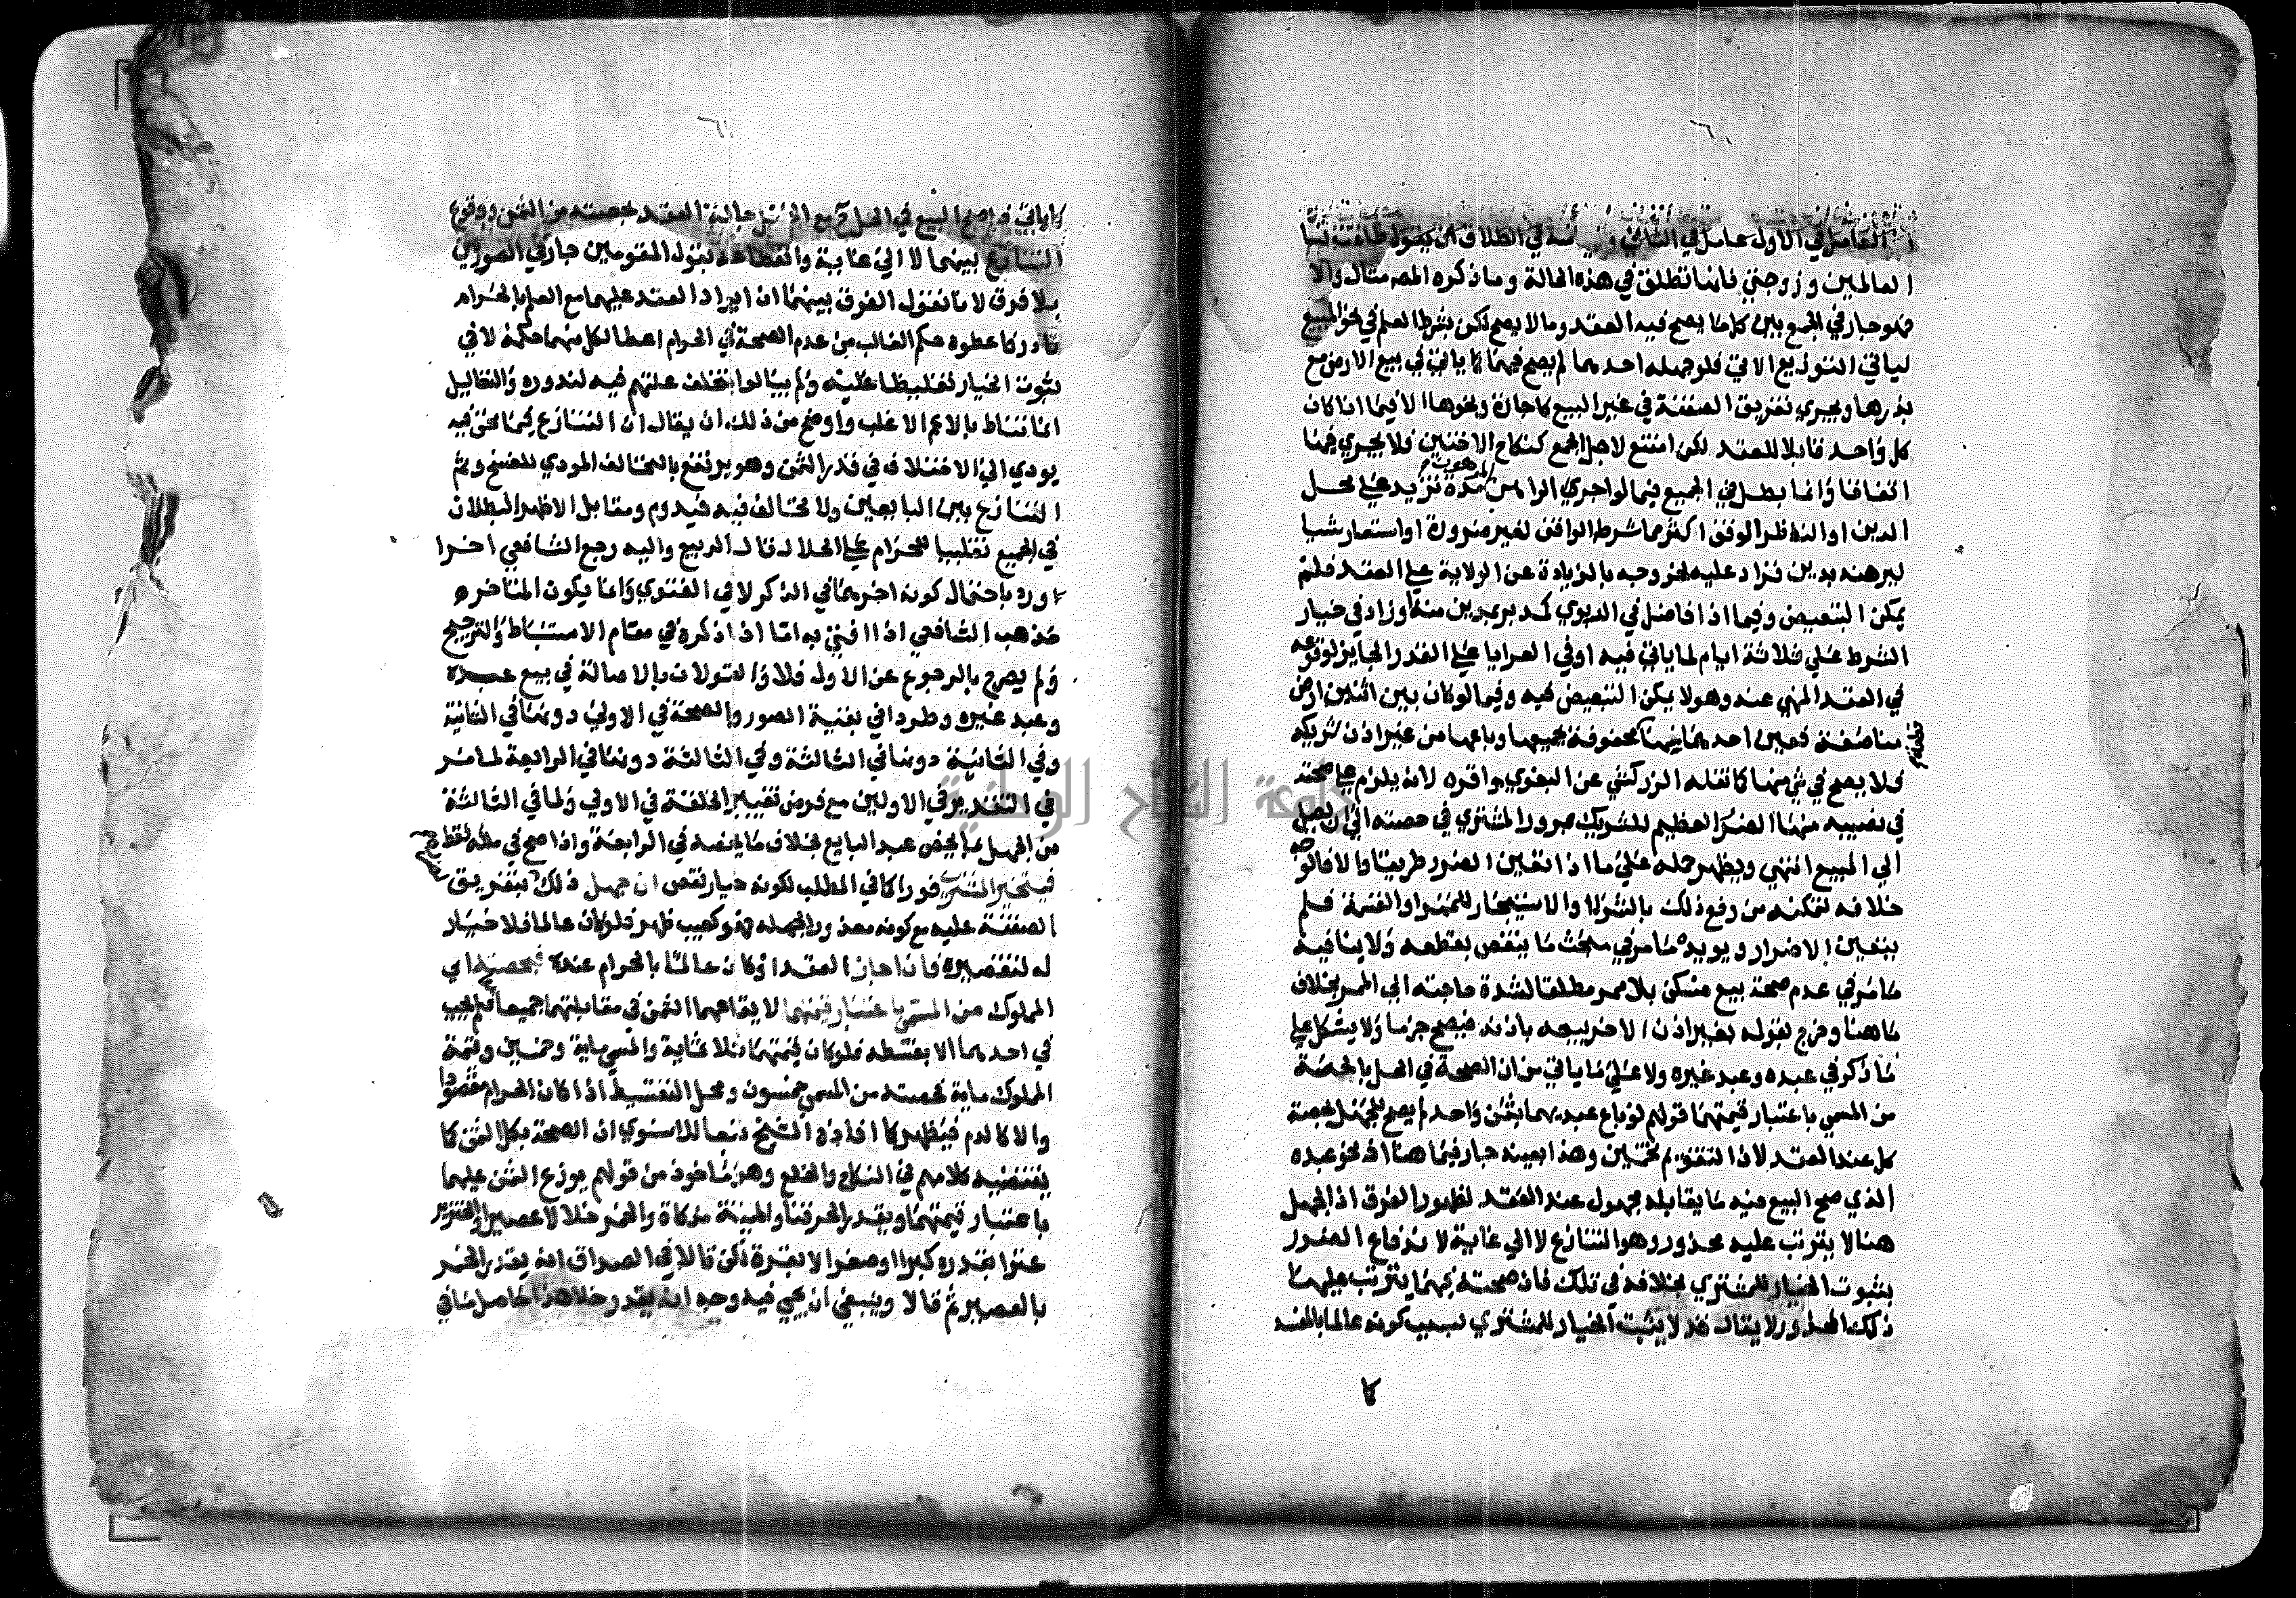 العامل في الاول عامل في الثاني في الطلاق ان يقول طلقت نسا
العالمين وزوجتي فانها تطلق في هذه الحالة وما ذكره المص مثال والا
فهو جار في الجمع بين كل ما يصح فيه العقد وما لا يصح لكن بشرط العلم في نحو المبيع
لياتي التوزيع الاتي فلو جهله احدهما لم يصح فيهما كما ياتي في بيع الارض مع
بذرها ويجري تفريق الصفقة في غير البيع كاجارة ونحوها الا فيما اذا كان
كل واحد قابلا للعقد لكن امتنع لاجل الجمع كنكاح الاختين فلا يجري فيها
اتفاقا وانما بطل في الجميع فيما لو اجري الراهن المرهون مدة تزيد على محل
الدين او الناظر الوقف اكثر مما شرط الواقف لغير ضرورة او استعار شيا
ليرهنه بدين فزاد عليه لخروجه بالزيادة عن الولاية على العقد فلم
يمكن التبعيض وفيما اذا فاضل في الربوي كمد بر بمدين منه او زاد في خيار
الشرط على ثلاثة ايام لما ياتي فيه او في العرايا على القدر الجايز لوقوعه
في العقد المنهي عنه وهو لا يمكن التبعيض فيه وفيما لو كان بين اثنين ارض
مناصفة فعين احدهما منها قطعة محفوفة بجميعها وباعها من غير اذن شريكه
فلا يصح في شي منها كما نقله الزركشي عن البغوي واقره لانه يلزم على صحته
في نصيبه منها الضرر العظيم للشريك بمرور المشتري في حصته الى ان يصل
الى المبيع انتهى ويظهر حمله على ما اذا تعين الضرر طريقا والا فالاوجه
خلافه لتمكنه من رفع ذلك بالشرا او الاستيجار للممر او القسمة فلم
يتعين الاضرار ويويده ما مر في مبحث ما ينقص بقطعه ولا ينافيه
ما مر في عدم صحة بيع مسكن بلا ممر مطلقا لشدة حاجته الى الممر بخلاف
ما هنا وخرج بقوله بغير اذن الاخر بيعه باذنه فيصح جزما ولا يشكل على
ما ذكر في عبده وعبد غيره ولا على ما ياتي من ان الصحة في الحل بالحصة
من المسمى باعتبار قيمتهما قولهم لو باع عبديهما بثمن واحد لم يصح للجهل بحصة
كل عند العقد لان التقويم تخمين وهذا بعينه جار فيما هنا اذ نحو عبده
الذي صح البيع فيه ما يقابله مجهول عند العقد لظهور الفرق اذ الجهل
هنا لا يترتب عليه محذور وهو التنازع لا الى غاية لاندفاع الضرر
بثبوت الخيار للمشتري بخلافه في تلك فان صحته فيهما يترتب عليها
ذلك المحذور ولا يقال قد لا يثبت الخيار للمشتري لسبب كونه عالما بالمفسد
كما
كما ياتي فصح البيع في الحل مع الجهل حالة العقد بحصته من الثمن ووقوع
التنازع بينهما لا الى غاية وانقطاعه بقول المقومين جار في الصورتين
بلا فرق لانا نقول الفرق بينهما ان ايراد العقد عليهما مع العلم بالحرام
نادر فاعطوه حكم الغالب من عدم الصحة في الحرام اعطا لكل منهما حكمه لا في
ثبوت الخيار تغليظا عليه ولم يبالوا بتخلف علتهم فيه لندوره والتعاليل
انما تناط بالاعم الاغلب واوضح من ذلك ان يقال ان التنازع فيما نحن فيه
يودي الى الاختلاف في قدر الثمن وهو يرتفع بالتخالف المودي للفسخ وثم
التنازع بين البايعين ولا تخالف فيه فيدوم ومقابل الاظهر البطلان
في الجميع تغليبا للحرام على الحلال قال الربيع واليه رجع الشافعي اخرا
ورد باحتمال كونه اخرهما في الذكر لا في الفتوي وانما يكون المتاخر
مذهب الشافعي اذا افتى به اما اذا ذكره في مقام الاستنباط والترجيح
ولم يصرح بالرجوع عن الاول فلا والقولان بالاصالة في بيع عبده
وعبد غيره وطردا في بقية الصور والصحة في الاولى دونها في الثانية
وفي الثانية دونها في الثالثة وفي الثالثة دونها في الرابعة لما مر
في التقدير في الاوليين مع فرض تغيير الخلقة في الاولى ولما في الثالثة
من الجهل بما يخص عبد البايع بخلاف ما يخصه في الرابعة واذا صح في ملكه فقط
فيتخير المشتري فورا كما في المطلب لكونه خيار نقص ان جهل ذلك بتفريق
الصفقة عليه مع كونه معذورا لجهله فهو كعيب ظهر فلو كان عالما فلا خيار
له لتقصيره فان اجاز العقد او كان عالما بالحرام عنده فبحصته اي
المملوك من المسمى باعتبار قيمتهما لايقاعهما الثمن في مقابلتهما جميعا فلم يجب
في احدهما الا بقسطه فلو كان قيمتهما ثلاثماية والمسمى ماية وخمسين وقيمة
المملوك ماية فحصته من المسمى خمسون ومحل التقسيط اذا كان الحرام مقصودا
والا كالدم فيظهر كما افاده الشيخ تبعا للاسنوي ان الصحة بكل الثمن كما
يقتضيه كلامهم في النكاح والخلع وهو ماخوذ من قولهم يوزع الثمن عليهما
باعتبار قيمتهما ويقدر الحر قنا والميتة مذكاة والخمر خلا لا عصيرا والخنزير
عنزا بقدره كبرا وصغرا لا بقرة لكن قالا في الصداق انه يقدر الخمر
بالعصير ثم قالا وينبغي ان يجي فيه وجه انه يقدر خلا هذا حاصل ما في